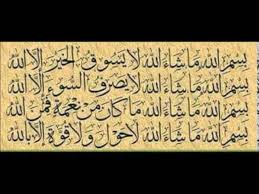 بِسْمِ اللهِ مَا شَاءَ اللهُ لَا يَسُوقُ الْخَيْرَ إِلَّا اللهُ
بِسْمِ اللهِ مَا شَاءَ اللهُ لَا يَصْرِفُ السُّوءَ إِلَّا اللهُ
بِسْمِ اللهِ مَا شَاءَ اللهُ مَا كَانَ مِنْ نِعْمَةٍ فَمِنَ اللهِ
بِسْمِ اللهِ مَا شَاءَ اللهُ لَا حَوْلَ وَلَا قُوَّةَ إِلَّا بِاللهِ